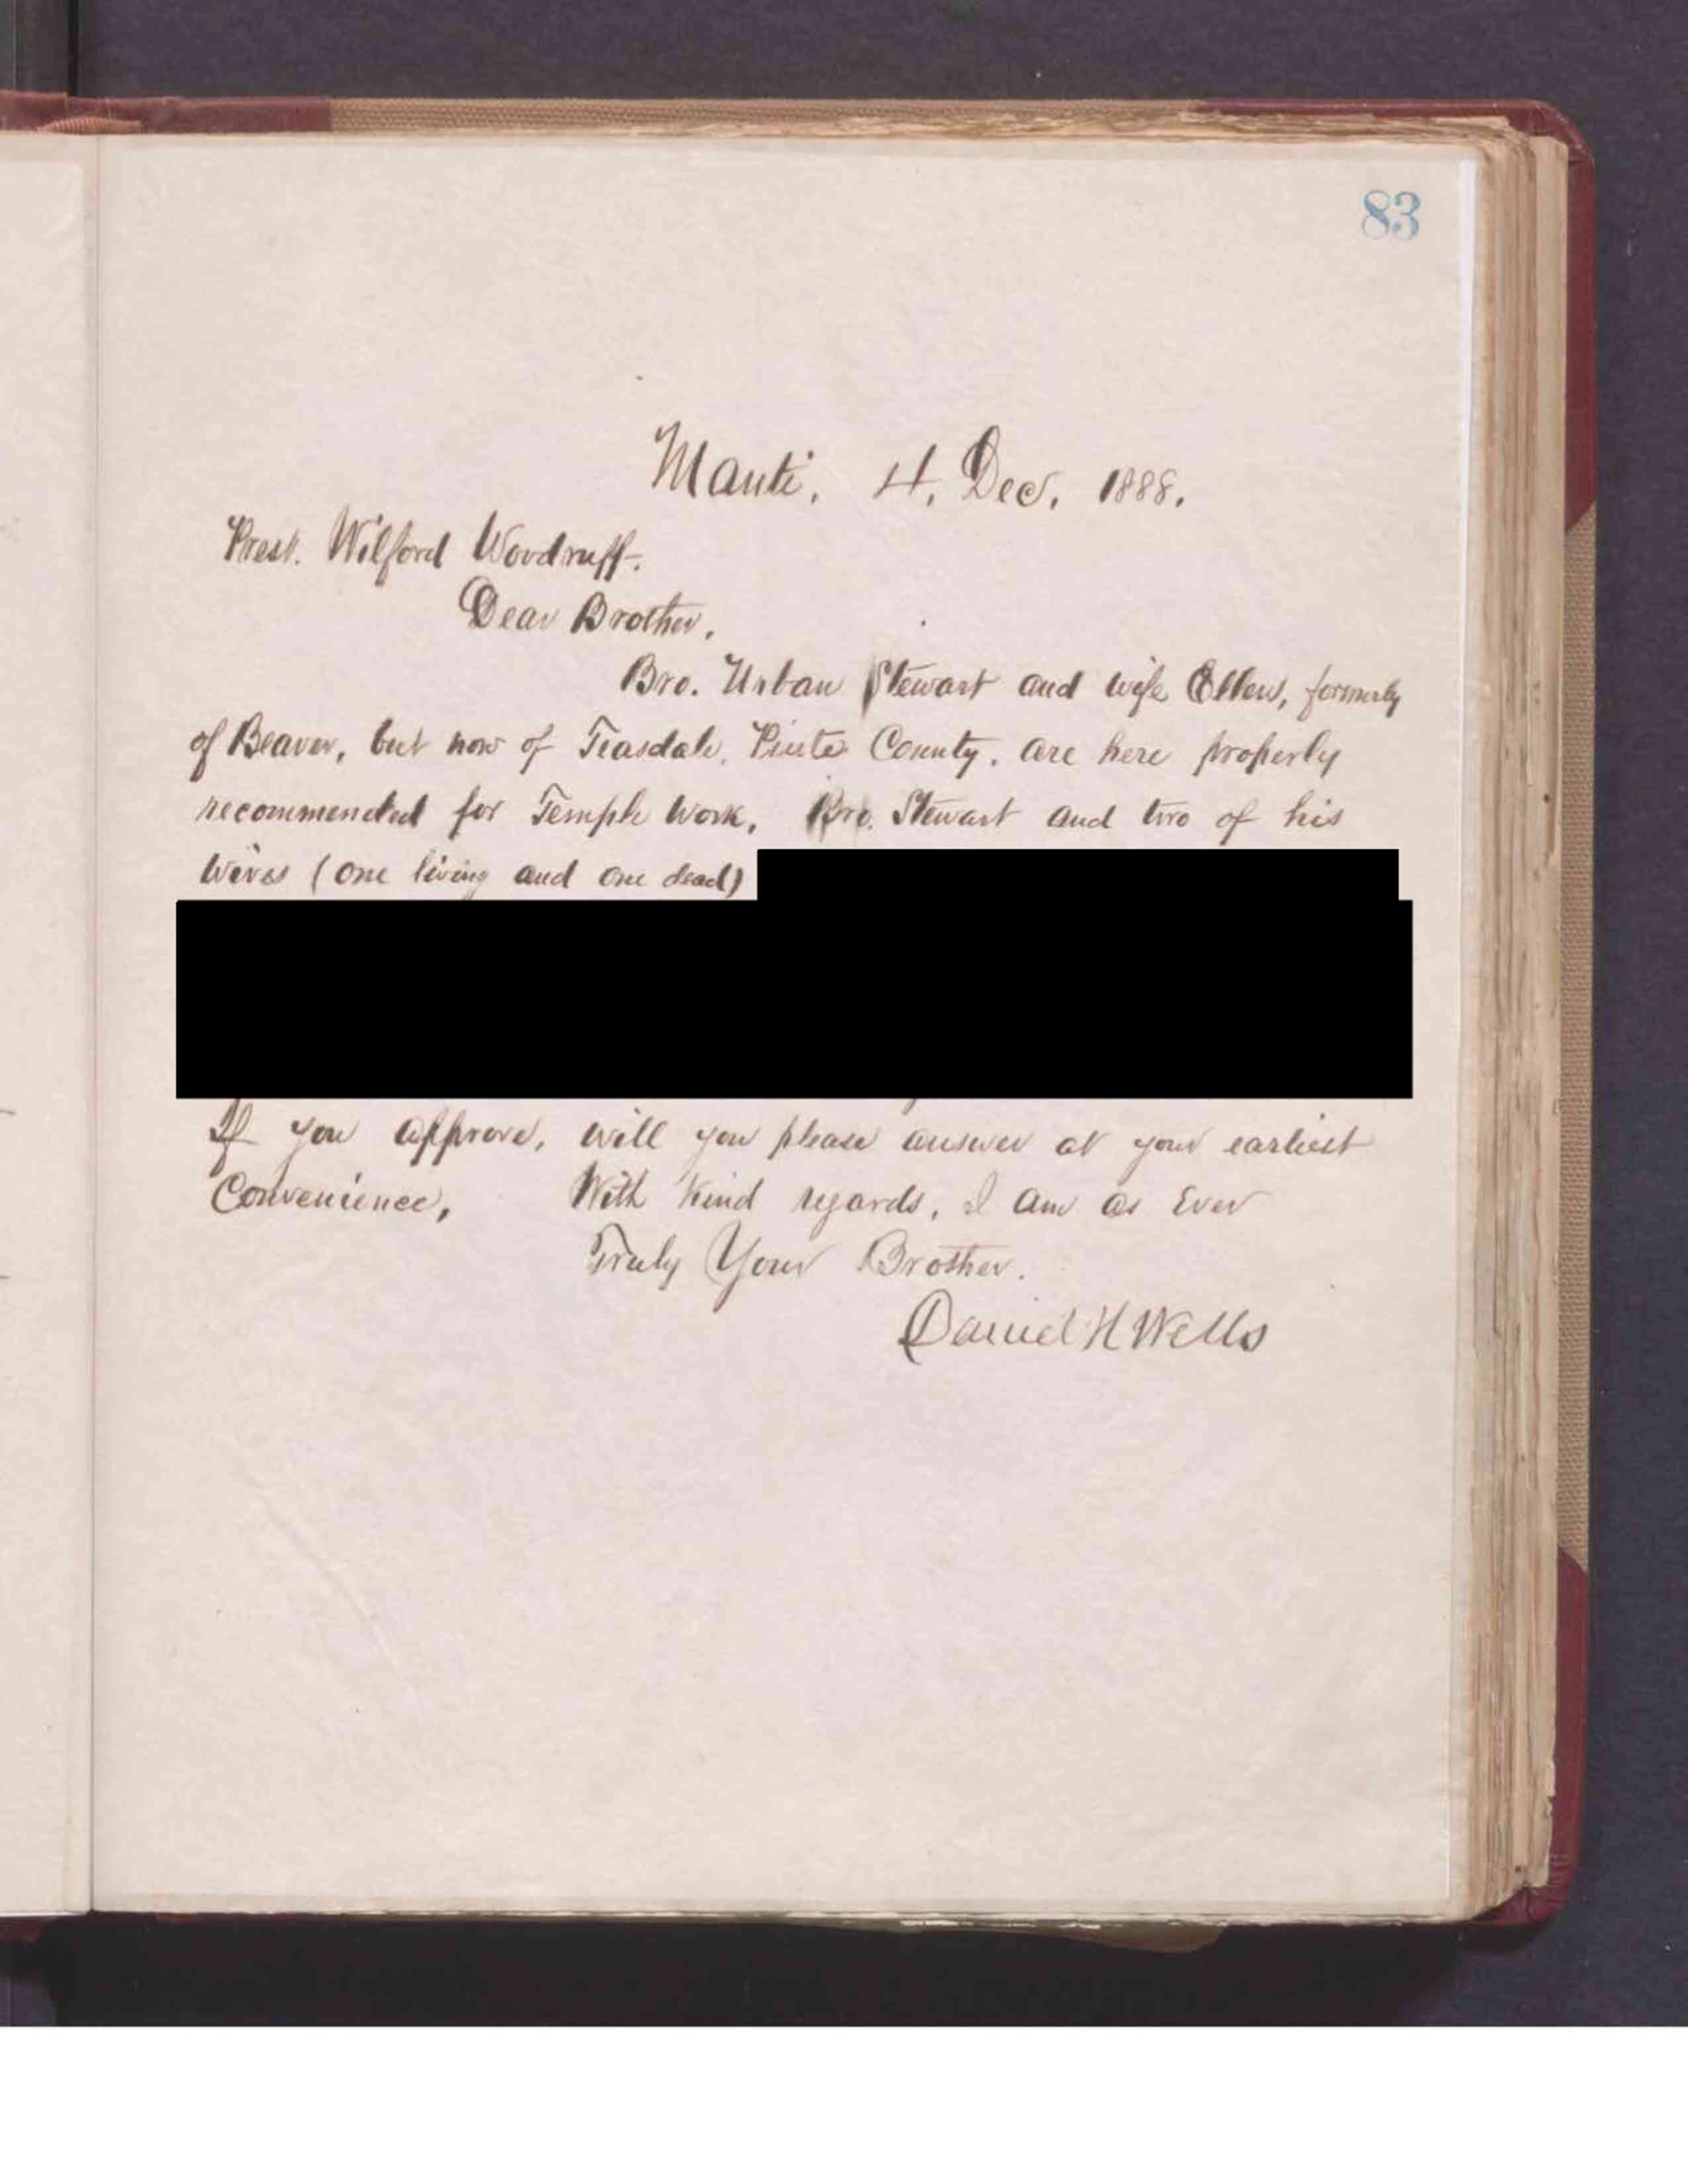 83
Manti, 4, Dec, 1888,
Prest. Wilford Woodruff.
Dear Brother,
Bro. Urban Stewart and wife Ellen, formerly
of Beaver, but now of Teasdale, Piute County, are here properly
recommended for Temple Work, Bro. Stewart and two of his
Wives (one living and one dead)
If you approve, will you please answer at your earliest
Convenience, With kind regards, I am as Ever
Truly Your Brother.
Daniel H Wells